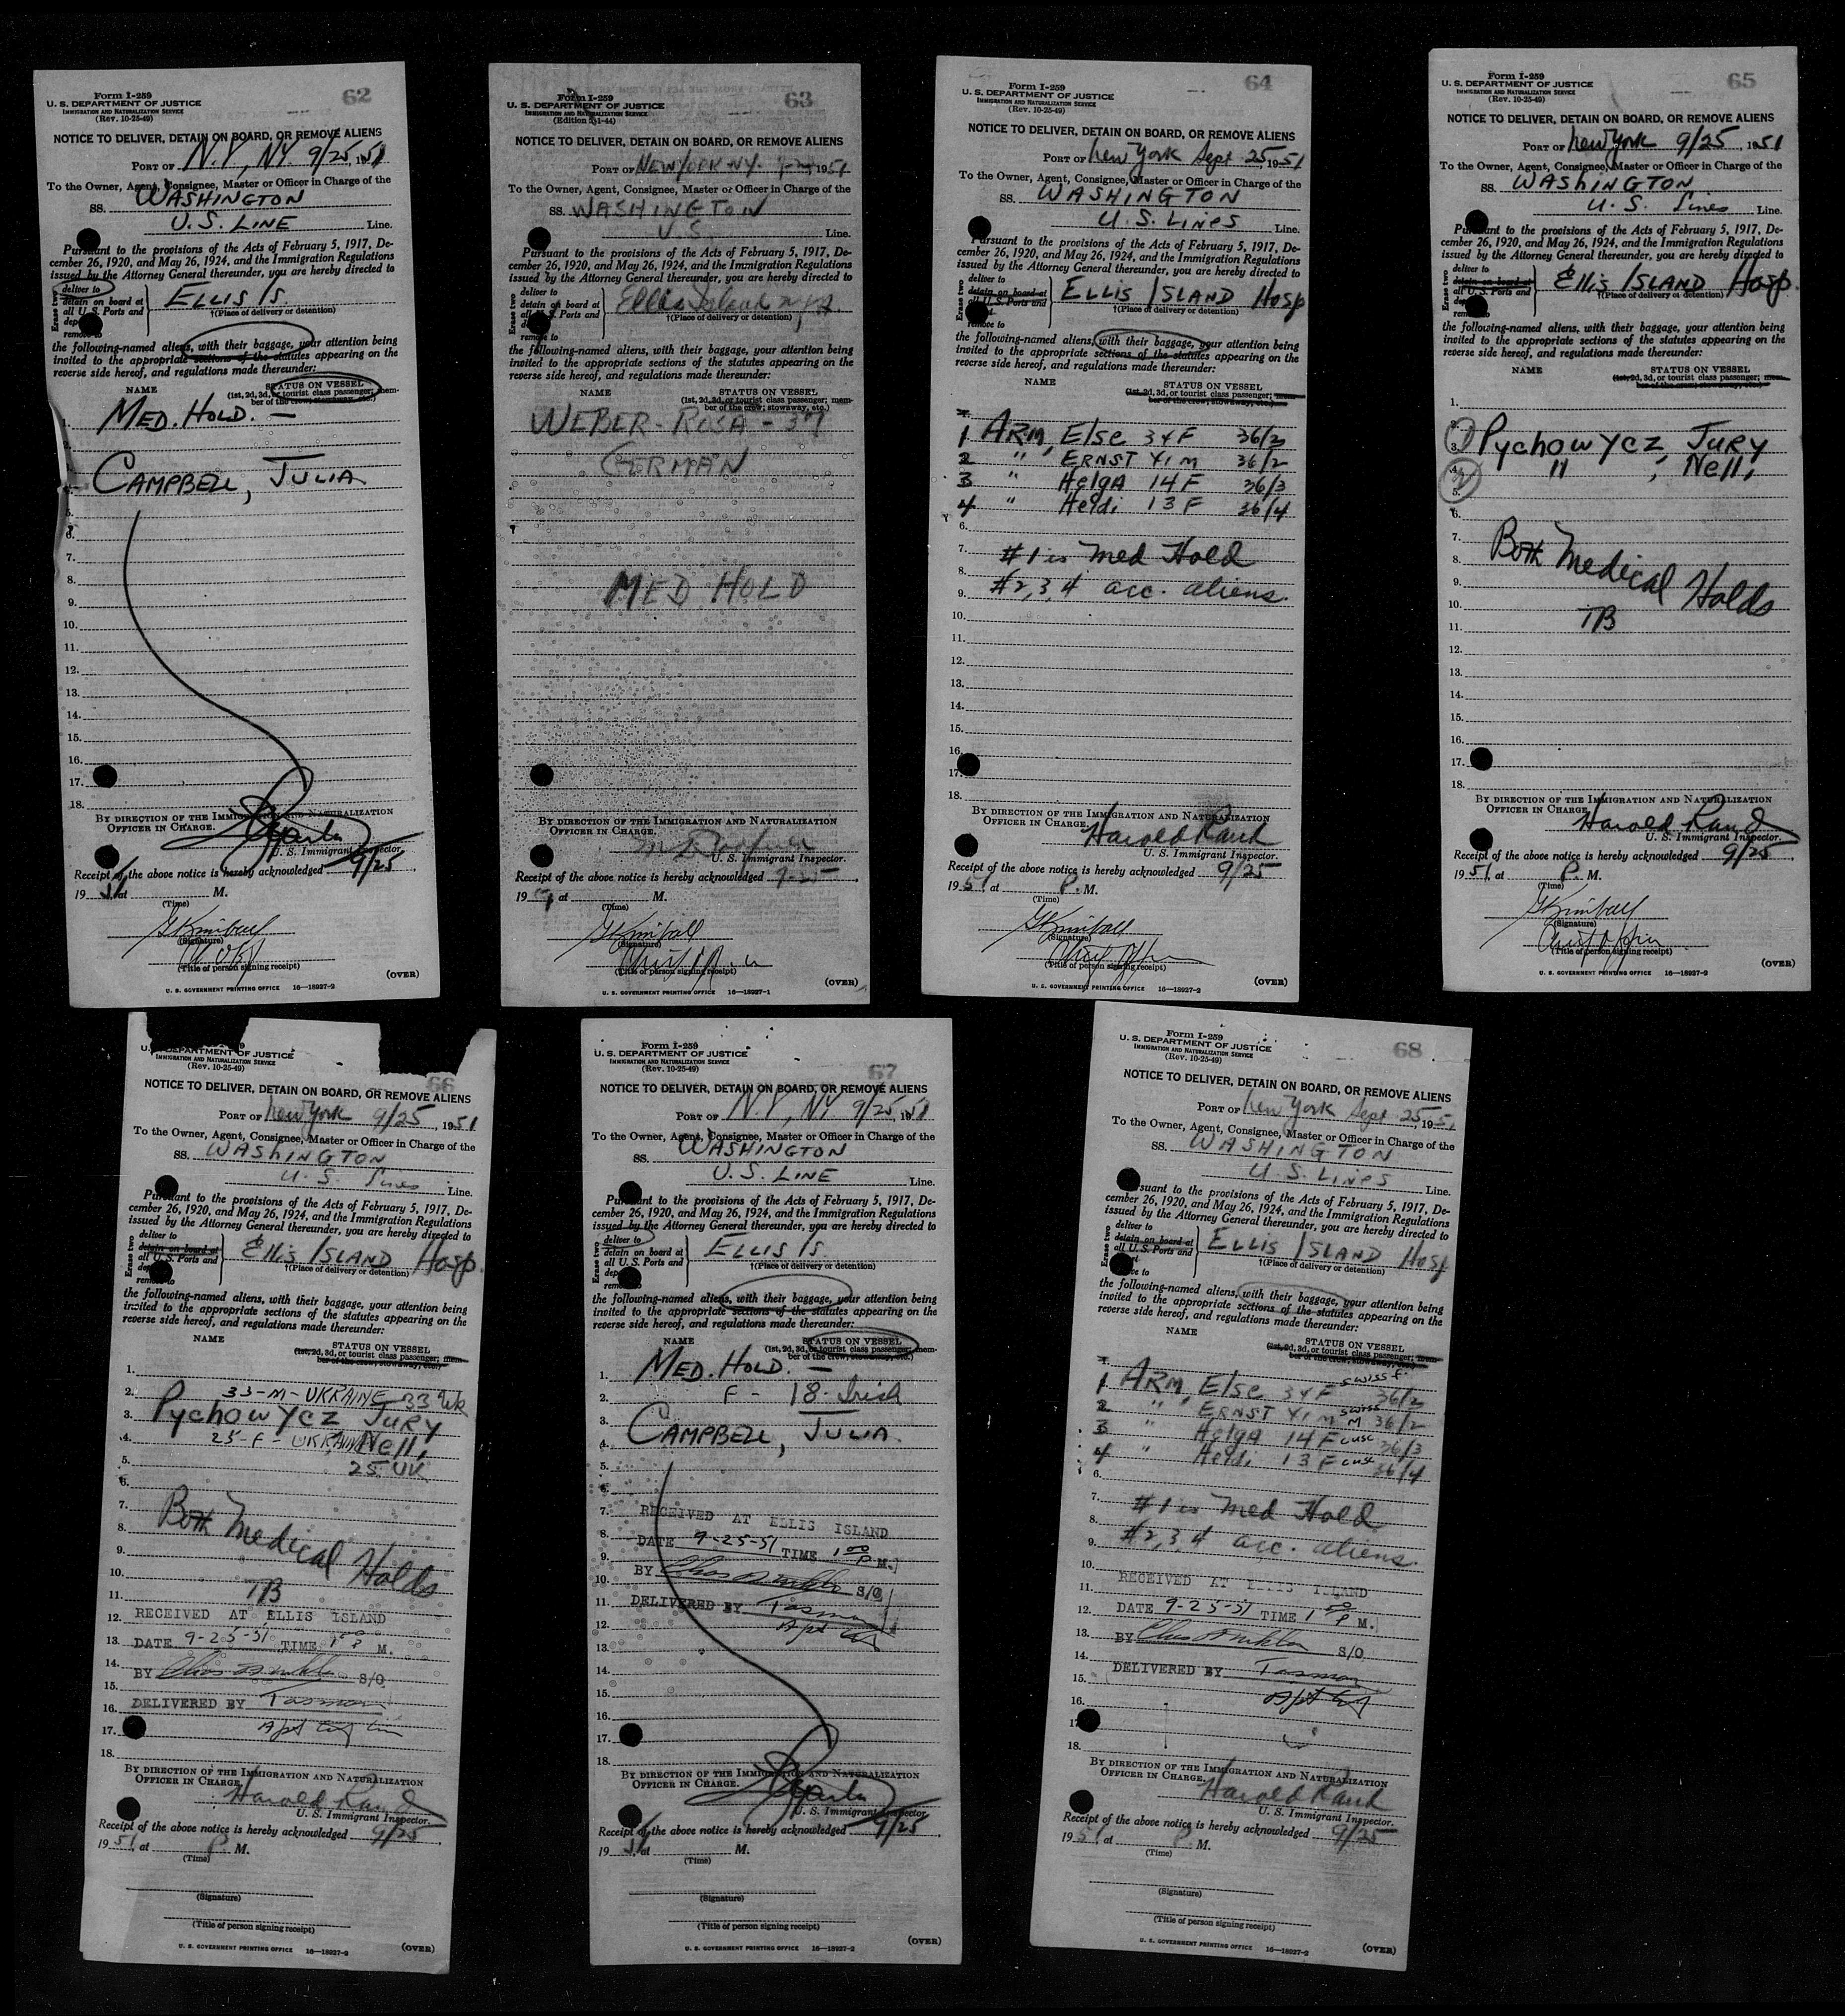 62
Form I-259
U. S. DEPARTMENT OF JUSTICE
IMMIGRATION AND NATURALIZATION SERVICE
(Rev. 10-25-49)
NOTICE TO DELIVER, DETAIN ON BOARD, OR REMOVE ALIENS
PORT OF N.Y., NY 9/25, 1951
To the Owner, Agent, Consignee, Master or Officer in Charge of the
SS. WASHINGTON
U.S. LINE Line.
Pursuant to the provisions of the Acts of February 5, 1917, De-
cember 26, 1920, and May 26, 1924, and the Immigration Regulations
issued by the Attorney General thereunder, you are hereby directed to
Erase two
deliver to
detain on board at
all U.S. Ports and
dep
remove to
ELLIS IS.
†(Place of delivery or detention)
the following-named aliens, with their baggage, your attention being
invited to the appropriate sections of the statutes appearing on the
reverse side hereof, and regulations made thereunder:
NAME STATUS ON VESSEL
(1st, 2d, 3d, or tourist class passenger; mem-
ber of the crew; stowaway, etc.)
1. MED. HOLD. —
2.
3.
4. CAMPBELL, JULIA
5.
6.
7.
8.
9.
10.
11.
12.
13.
14.
15.
16.
17.
18.
BY DIRECTION OF THE IMMIGRATION AND NATURALIZATION
OFFICER IN CHARGE.
U. S. Immigrant Inspector.
Receipt of the above notice is hereby acknowledged 9/25
1951, at M.
(Time)
G Kimball
(Signature)
(Title of person signing receipt)
(OVER)
U. S. GOVERNMENT PRINTING OFFICE 16—18927-2
63
Form I-259
U. S. DEPARTMENT OF JUSTICE
IMMIGRATION AND NATURALIZATION SERVICE
(Edition 2-1-44)
NOTICE TO DELIVER, DETAIN ON BOARD, OR REMOVE ALIENS
PORT OF NEW YORK NY. 1951
To the Owner, Agent, Consignee, Master or Officer in Charge of the
SS. WASHINGTON
U.S. Line.
Pursuant to the provisions of the Acts of February 5, 1917, De-
cember 26, 1920, and May 26, 1924, and the Immigration Regulations
issued by the Attorney General thereunder, you are hereby directed to
Erase two
deliver to
detain on board at
all U. S. Ports and
de
remove to
Ellis Island
†(Place of delivery or detention)
the following-named aliens, with their baggage, your attention being
invited to the appropriate sections of the statutes appearing on the
reverse side hereof, and regulations made thereunder:
NAME STATUS ON VESSEL
(1st, 2d, 3d, or tourist class passenger; mem-
ber of the crew; stowaway, etc.)
WEBER - ROSA - 37
GERMAN
MED HOLD
BY DIRECTION OF THE IMMIGRATION AND NATURALIZATION
OFFICER IN CHARGE.
U. S. Immigrant Inspector.
Receipt of the above notice is hereby acknowledged 9-25
195, at M.
(Time)
G Kimball
(Signature)
(Title of person signing receipt)
(OVER)
U. S. GOVERNMENT PRINTING OFFICE 16—18927-1
64
Form I-259
U. S. DEPARTMENT OF JUSTICE
IMMIGRATION AND NATURALIZATION SERVICE
(Rev. 10-25-49)
NOTICE TO DELIVER, DETAIN ON BOARD, OR REMOVE ALIENS
PORT OF New York Sept 25 1951
To the Owner, Agent, Consignee, Master or Officer in Charge of the
SS. WASHINGTON
U.S. LINES Line.
Pursuant to the provisions of the Acts of February 5, 1917, De-
cember 26, 1920, and May 26, 1924, and the Immigration Regulations
issued by the Attorney General thereunder, you are hereby directed to
Erase two
deliver to
detain on board at
all U.S. Ports and
remove to
ELLIS ISLAND Hosp
†(Place of delivery or detention)
the following-named aliens, with their baggage, your attention being
invited to the appropriate sections of the statutes appearing on the
reverse side hereof, and regulations made thereunder:
NAME STATUS ON VESSEL
(1st, 2d, 3d, or tourist class passenger; mem-
ber of the crew; stowaway, etc.)
1 ARM, Else 34 F 36/2
2 " ERNST 41 M 36/2
3 " Helga 14 F 36/3
4 " Heidi 13 F 36/4
6.
7. #1 is Med Hold
8.
9. #2,3,4 acc. aliens.
10.
11.
12.
13.
14.
15.
16.
17.
18.
BY DIRECTION OF THE IMMIGRATION AND NATURALIZATION
OFFICER IN CHARGE.
Harold Rand
U. S. Immigrant Inspector.
Receipt of the above notice is hereby acknowledged 9/25
1951 at P. M.
(Time)
G Kimball
(Signature)
(Title of person signing receipt)
(OVER)
U. S. GOVERNMENT PRINTING OFFICE 16—18927-2
65
Form I-259
U. S. DEPARTMENT OF JUSTICE
IMMIGRATION AND NATURALIZATION SERVICE
(Rev. 10-25-49)
NOTICE TO DELIVER, DETAIN ON BOARD, OR REMOVE ALIENS
PORT OF New York 9/25, 1951
To the Owner, Agent, Consignee, Master or Officer in Charge of the
SS. WASHINGTON
U. S. Lines Line.
Pursuant to the provisions of the Acts of February 5, 1917, De-
cember 26, 1920, and May 26, 1924, and the Immigration Regulations
issued by the Attorney General thereunder, you are hereby directed to
Erase two
deliver to
detain on board at
all U.S. Ports and
dep
remove to
Ellis ISLAND Hosp.
†(Place of delivery or detention)
the following-named aliens, with their baggage, your attention being
invited to the appropriate sections of the statutes appearing on the
reverse side hereof, and regulations made thereunder:
NAME STATUS ON VESSEL
(1st, 2d, 3d, or tourist class passenger; mem-
ber of the crew; stowaway, etc.)
1.
3. Pychowycz, Jury
" , Nelli
5.
6.
7.
8. Both Medical Holds
9.
10.
11. TB
12.
13.
14.
15.
16.
17.
18.
BY DIRECTION OF THE IMMIGRATION AND NATURALIZATION
OFFICER IN CHARGE.
Harold Rand
U. S. Immigrant Inspector.
Receipt of the above notice is hereby acknowledged 9/25
1951, at P. M.
(Time)
G Kimball
(Signature)
(Title of person signing receipt)
(OVER)
U. S. GOVERNMENT PRINTING OFFICE 16—18927-2
66
U. S. DEPARTMENT OF JUSTICE
IMMIGRATION AND NATURALIZATION SERVICE
(Rev. 10-25-49)
NOTICE TO DELIVER, DETAIN ON BOARD, OR REMOVE ALIENS
PORT OF New York 9/25, 1951
To the Owner, Agent, Consignee, Master or Officer in Charge of the
SS. WASHINGTON
U. S. Lines Line.
Pursuant to the provisions of the Acts of February 5, 1917, De-
cember 26, 1920, and May 26, 1924, and the Immigration Regulations
issued by the Attorney General thereunder, you are hereby directed to
Erase two
deliver to
detain on board at
all U.S. Ports and
remove to
Ellis ISLAND Hosp.
†(Place of delivery or detention)
the following-named aliens, with their baggage, your attention being
invited to the appropriate sections of the statutes appearing on the
reverse side hereof, and regulations made thereunder:
NAME STATUS ON VESSEL
(1st, 2d, 3d, or tourist class passenger; mem-
ber of the crew, stowaway, etc.)
1.
2. 33-M-UKRAINE 33 Uk
3. Pychowycz Jury
4. 25-F-UKRAINE Nelli
5. 25 UK
6.
7. Both Medical Holds
8.
9.
10.
11. TB
12. RECEIVED AT ELLIS ISLAND
13. DATE 9-25-51 TIME 1 00 P M.
14.
BY S/O
15.
16. DELIVERED BY Tasman
17.
18.
BY DIRECTION OF THE IMMIGRATION AND NATURALIZATION
OFFICER IN CHARGE.
Harold Rand
U. S. Immigrant Inspector.
Receipt of the above notice is hereby acknowledged 9/25
1951, at P. M.
(Time)
(Signature)
(Title of person signing receipt)
(OVER)
U. S. GOVERNMENT PRINTING OFFICE 16—18927-2
67
Form I-259
U. S. DEPARTMENT OF JUSTICE
IMMIGRATION AND NATURALIZATION SERVICE
(Rev. 10-25-49)
NOTICE TO DELIVER, DETAIN ON BOARD, OR REMOVE ALIENS
PORT OF N.Y., NY 9/25, 1951
To the Owner, Agent, Consignee, Master or Officer in Charge of the
SS. WASHINGTON
U.S. LINE Line.
Pursuant to the provisions of the Acts of February 5, 1917, De-
cember 26, 1920, and May 26, 1924, and the Immigration Regulations
issued by the Attorney General thereunder, you are hereby directed to
Erase two
deliver to
detain on board at
all U.S. Ports and
dep
remove to
ELLIS IS.
†(Place of delivery or detention)
the following-named aliens, with their baggage, your attention being
invited to the appropriate sections of the statutes appearing on the
reverse side hereof, and regulations made thereunder:
NAME STATUS ON VESSEL
(1st, 2d, 3d, or tourist class passenger; mem-
ber of the crew; stowaway, etc.)
1. MED. HOLD. —
2. F - 18 - Irish
3.
4. CAMPBELL, JULIA
5.
6.
7. RECEIVED AT ELLIS ISLAND
8. DATE 9-25-51 TIME 1 00 P M.
9.
10. BY S/O
11. DELIVERED BY Tasman
12.
13.
14.
15.
16.
17.
18.
BY DIRECTION OF THE IMMIGRATION AND NATURALIZATION
OFFICER IN CHARGE.
U. S. Immigrant Inspector.
Receipt of the above notice is hereby acknowledged 9/25
1951, at M.
(Time)
(Signature)
(Title of person signing receipt)
(OVER)
U. S. GOVERNMENT PRINTING OFFICE 16—18927-2
68
Form I-259
U. S. DEPARTMENT OF JUSTICE
IMMIGRATION AND NATURALIZATION SERVICE
(Rev. 10-25-49)
NOTICE TO DELIVER, DETAIN ON BOARD, OR REMOVE ALIENS
PORT OF New York Sept 25, 195
To the Owner, Agent, Consignee, Master or Officer in Charge of the
SS. WASHINGTON
U.S. LINES Line.
Pursuant to the provisions of the Acts of February 5, 1917, De-
cember 26, 1920, and May 26, 1924, and the Immigration Regulations
issued by the Attorney General thereunder, you are hereby directed to
Erase two
deliver to
detain on board at
all U.S. Ports and
remove to
ELLIS ISLAND Hosp
†(Place of delivery or detention)
the following-named aliens, with their baggage, your attention being
invited to the appropriate sections of the statutes appearing on the
reverse side hereof, and regulations made thereunder:
NAME STATUS ON VESSEL
(1st, 2d, 3d, or tourist class passenger; mem-
ber of the crew, stowaway, etc.)
1 ARM, Else 34 F swiss f. 36/2
2 " ERNST 41 M swiss M 36/2
3 " Helga 14 F 36/3
4 " Heidi 13 F 36/4
6.
7. #1 is Med Hold
8.
9. #2,3,4 acc. aliens.
10.
11. RECEIVED AT ELLIS ISLAND
12. DATE 9-25-51 TIME 1 00 P M.
13. BY S/O
14.
15. DELIVERED BY Tasman
16.
17.
18.
BY DIRECTION OF THE IMMIGRATION AND NATURALIZATION
OFFICER IN CHARGE.
Harold Rand
U. S. Immigrant Inspector.
Receipt of the above notice is hereby acknowledged 9/25
1951 at P. M.
(Time)
(Signature)
(Title of person signing receipt)
(OVER)
U. S. GOVERNMENT PRINTING OFFICE 16—18927-2